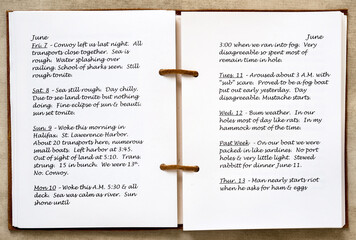 June
Fri. 7 - Convoy left us last night. All
transports close together. Sea is
rough. Water splashing over
railing. School of sharks seen. Still
rough tonite.
Sat. 8 - Sea still rough. Day chilly.
Due to see land tonite but nothing
doing. Fine eclipse of sun & beauti.
sun set tonite.
Sun. 9 - Woke this morning in
Halifax. St. Lawrence Harbor.
About 20 transports here, numerous
small boats. Left harbor at 3:45.
Out of sight of land at 5:10. Trans.
strung. 15 in bunch. We were 13th.
No. Convoy.
Mon 10 - Woke this A.M. 5:30 & all
deck. Sea was calm as river. Sun
shone until
June
3:00 when we ran into fog. Very
disagreeable so spent most of
remain time in hole.
Tues. 11 - Aroused about 3 A.M. with
"sub" scare. Proved to be a fog boat
put out early yesterday. Day
disagreeable. Mustache starts.
Wed. 12 - Bum weather. In our
holes most of day like rats. In my
hammock most of the time.
Past Week - On our boat we were
packed in like sardines. No port
holes & very little light. Stewed
rabbitt for dinner June 11.
Thur. 13 - Man nearly starts riot
when he asks for ham & eggs